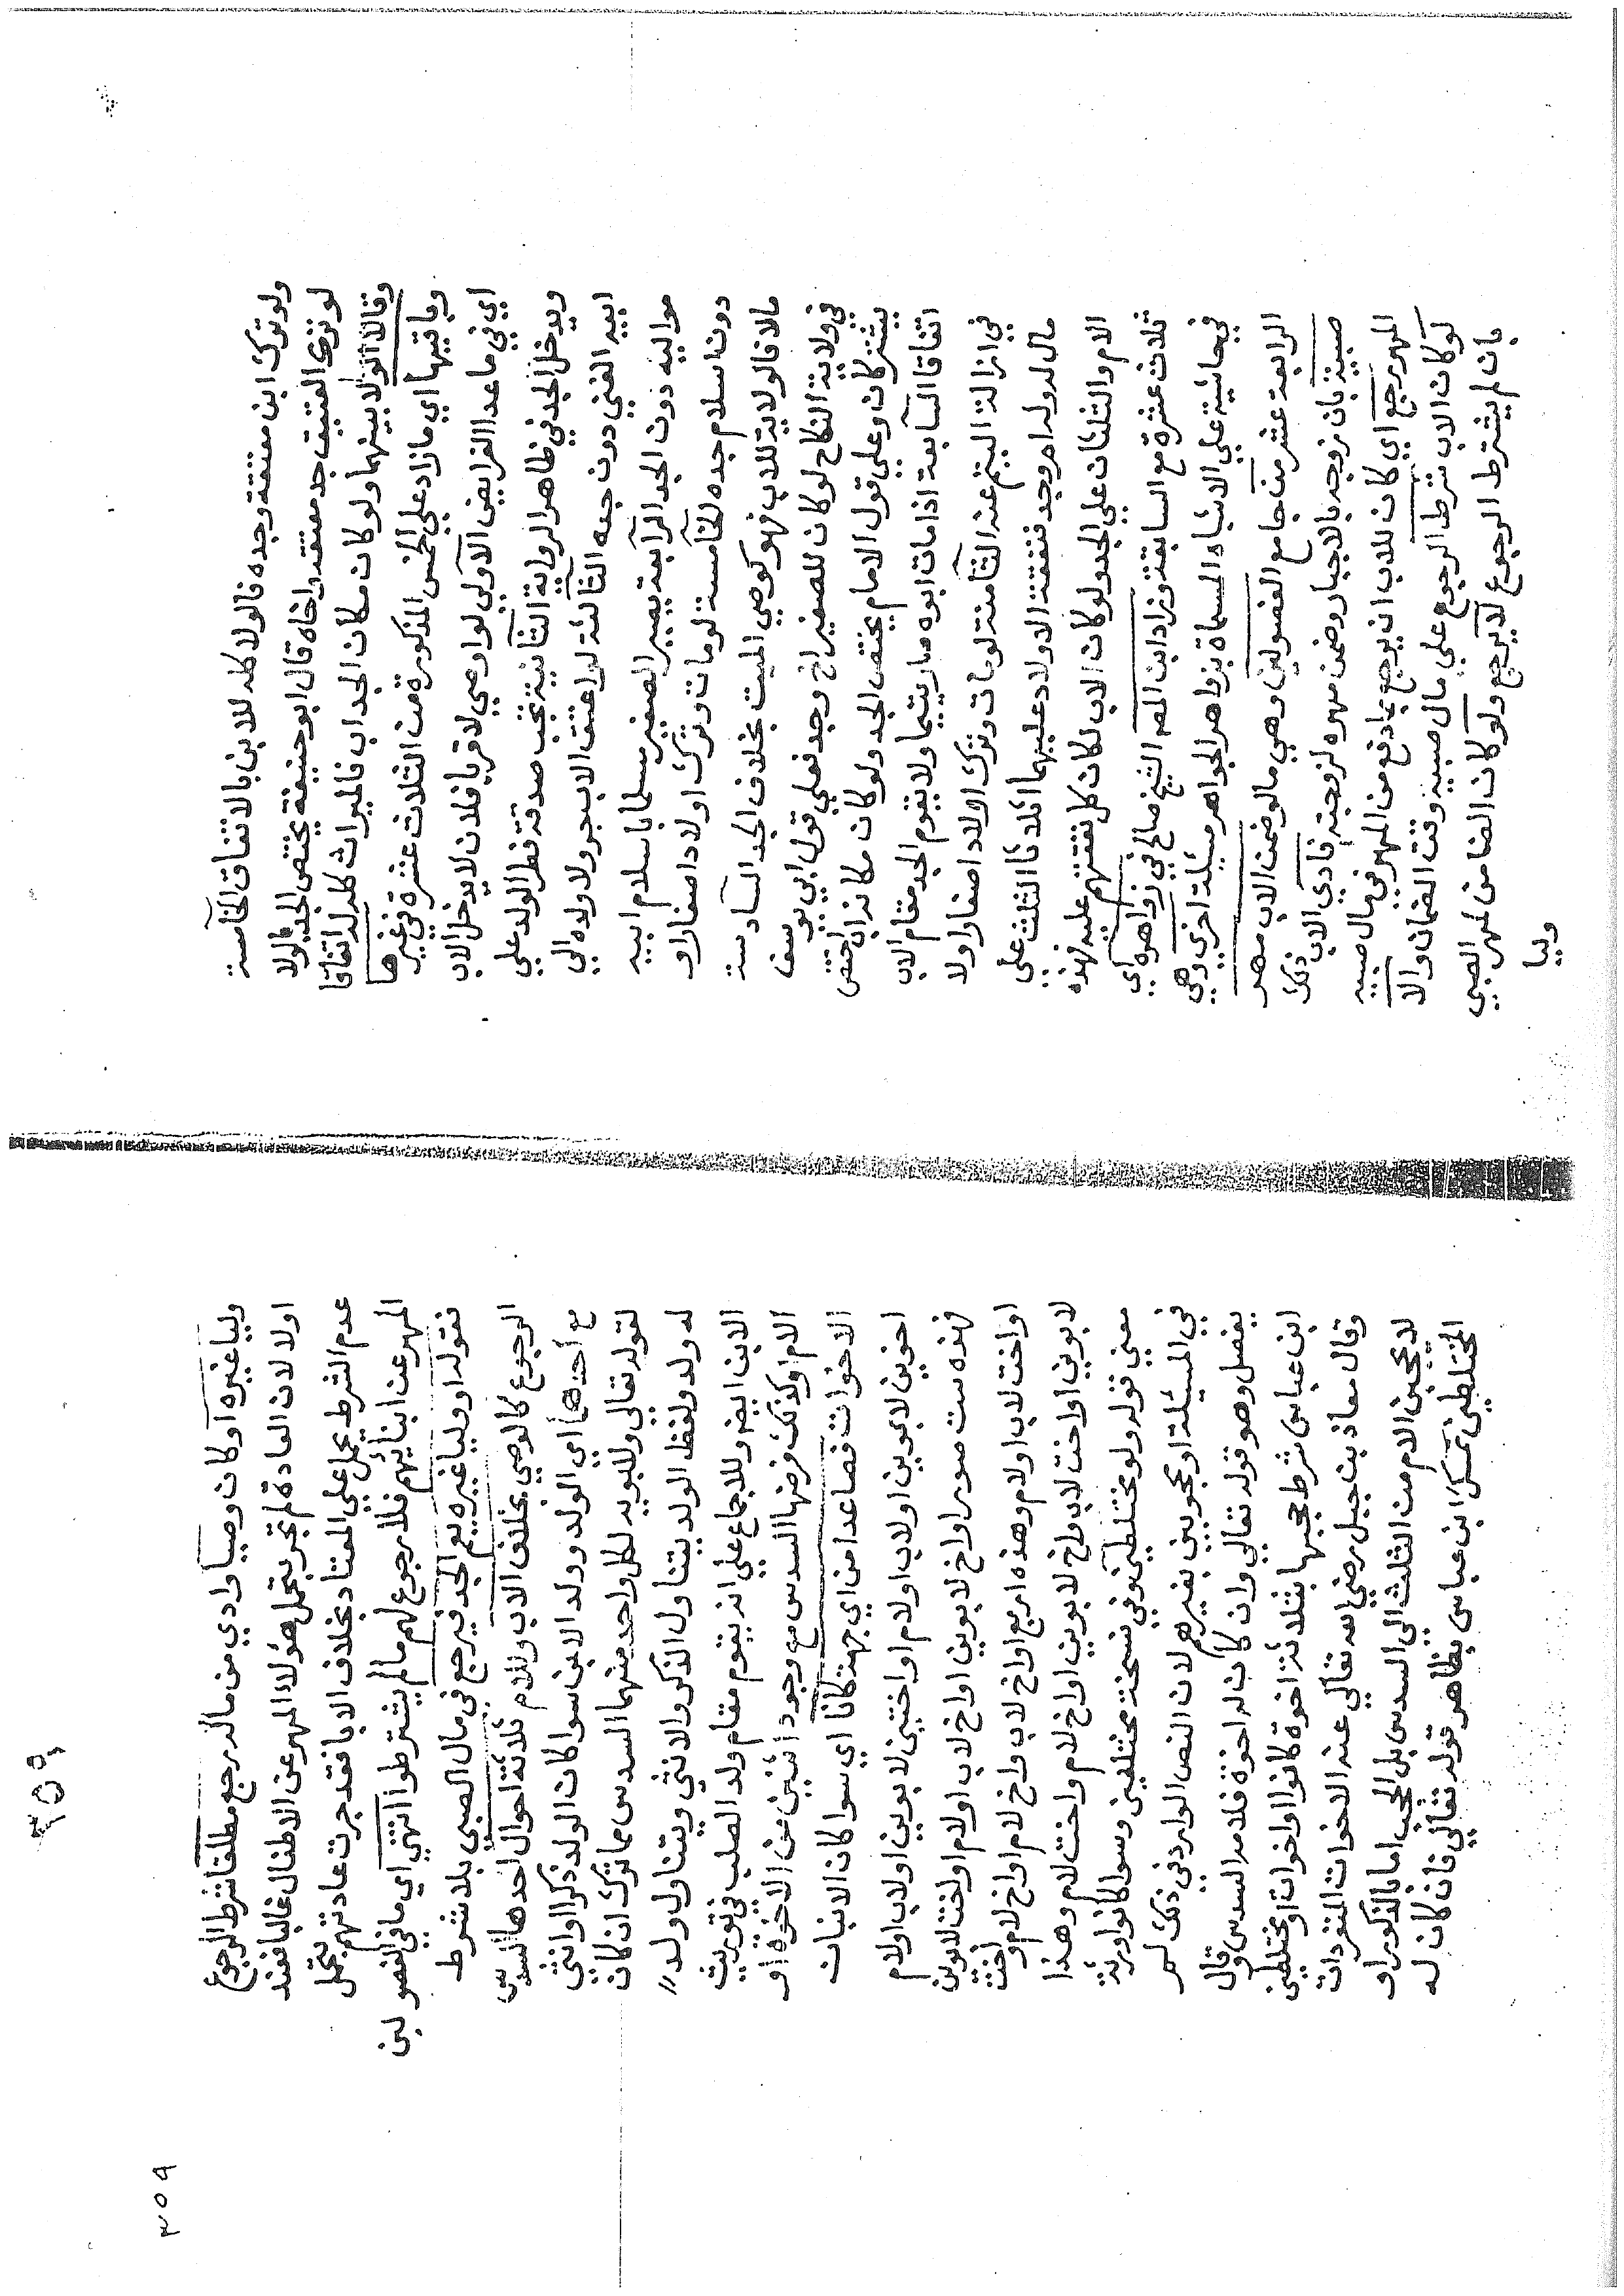 ولو ترك ابن معتقة وجده قالوا لا كله للابن بالاتفاق الخامسة
لو ترك العتيق جد معتقه واخاه قال ابو حنيفة يختص الجد بالولا
وقالا الولا بينهما ولو كان مكان الجد اب فالميراث كله له اتفاقا
وباقيها اي مازاد على الخمس المذكورة من الثلاث عشرة في غيرها
اي في ماعدا الفرايض الاولى لو اوصى لاقربا فلان لا يدخل الاب
ويدخل الجد في ظاهر الرواية الثانية تجب صدقة فطر الولد على
ابيه الغني دون جده الثالثة لو اعتق الاب جر ولا ولده الى
مواليه دون الجد الرابعة يصير الصغير مسلما باسلام ابيه
دون اسلام جده الخامسة لو مات وترك اولادا صغارا و
مالا فالولاية للاب فهو كوصي الميت بخلاف الجد السادسة
في ولاية النكاح لو كان للصغير اخ وجد فعلى قول ابي يوسف
يشتركان وعلى قول الامام يختص الجد ولو كان مكانه اب اختص
اتفاقا السابعة اذا مات ابوه صار يتيما ولا يقوم الجد مقام الاب
في ازالة اليتم عنه الثامنة لو مات وترك اولادا صغارا ولا
مال له وله ام وجد فنفقة الاولاد عليهما اثلاثا الثلث على
الام والثلثان على الجد ولو كان الاب لكان كل نفقتهم عليه فهذه
ثلاث عشرة مع السابقة وزاد ابن المصـ الشيخ صالح في زواهره اي
في حاشية على الاشباه المسماة بزواهر الجواهر مسيلة اخرى وهي
الرابعة عشر من جامع الفصولين وهي مالو ضمن الاب مهر
صبية بان زوجه بالاجبار وضمن مهره لزوجته فادى الاب ذلك
المهر يرجع اي كان للاب ان يرجع بما دفع من المهر في مال صبيه
لو كان الاب شرط الرجوع على مال صبيه وقت الضمان والا
بان لم يشترط الرجوع لا يرجع ولو كان الضامن لمهر الصبي
وليا
٣٥٩
٣٥٩
وليا غيره او كان وصيا وادى من ماله رجع مطلقا شرط الرجوع
اولا لان العادة لم تجر بتحمل هؤلاء المهر عن الاطفال غالبا فعند
عدم الشرط يحمل على المعتاد بخلاف الابا فقد جرت عادتهم بتحمل
المهر عن ابنائهم فلا رجوع لهم مالم يشترطوا انتهى اي ما في الفصولين
فقوله او وليا غيره يعم الجد فيرجع في مال الصبى بلا شرط
الرجوع كالوصي بخلاف الاب وللام ثلاثة احوال احدها السدس
مع احدهما اي الولد وولد الابن سوا كان الولد ذكرا او انثى
لقوله تعالى ولابويه لكل واحد منهما السدس مما ترك ان كان
له ولد ولفظ الولد يتناول الذكر والانثى ويتناول ولد
الابن ايضا وللاجماع على انه يقوم مقام ولد الصلب في توريث
الام وكذلك فرضها السدس مع وجود اثنين من الاخوة او
الاخوات فصاعدا من اي جهة كانا اي سوا كان الاثنان
اخوين لابوين او لاب او لام او اختين لابوين او لاب او لام
فهذه ست صور او اخ لابوين او اخ لاب او لام او اخت لابوين
او اخت لاب او لام وهذه اربع او اخ لاب واخ لام او اخ لام واخت
لابوين او اخت لاب واخ لابوين او اخ لام واخت لام وهذا
معنى قوله ولو مختلطين وفي نسخة مختلفين وسوا كانوا ورثة
في المسيلة او محجوبين بغيرهم لان النص الوارد في ذلك لم
يفصل وهو قوله تعالى وان كان له اخوة فلامه السدس وقال
ابن عباس شرط حجبها بثلاثة اخوة كانوا او اخوات او مختلطين
وقال معاذ بن جبل رضي الله تعالى عنه الاخوات المنفردات
لا يحجبن الام من الثلث الى السدس بل الحجب اما بالذكور او
المختلطين تمسك ابن عباس بظاهر قوله تعالى فان كان له